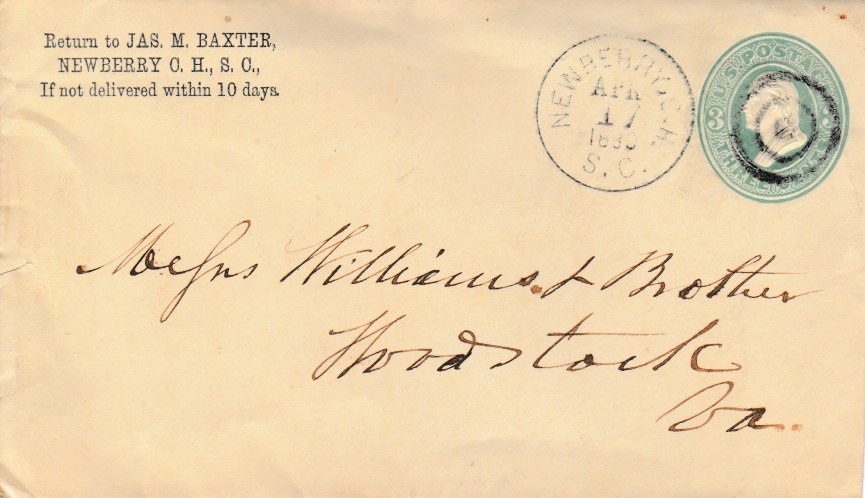 Return to JAS. M. BAXTER,
NEWBERRY C. H., S. C.,
If not delivered within 10 days.
NEWBERRY C.H.
APR
17
S. C.
U.S. POSTAGE
3 3
THREE CENTS
Messrs Williams & Brother
Woodstock
Va.